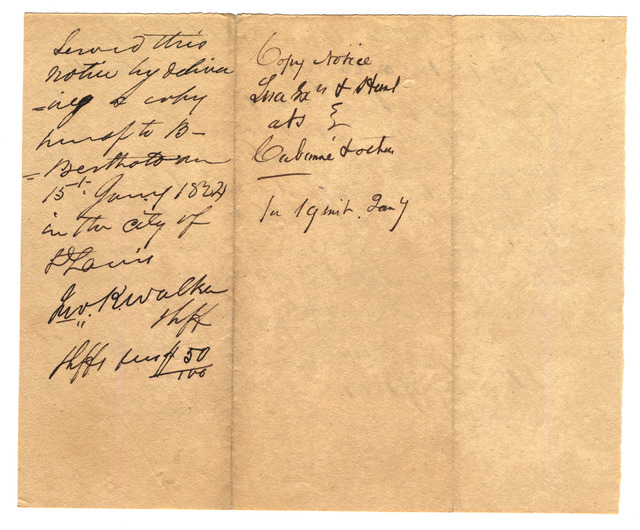 Served this
notice by deliver
=ing a copy
hereof to B-
=Berthold on
15th Jany 1822
in the city of
St Louis
Jno. K. Walker
Shff
Shffs fees $ 50/100
Copy Notice
Lisa & Hunt
ats
Cabanné & others
for 19 inst. Jany